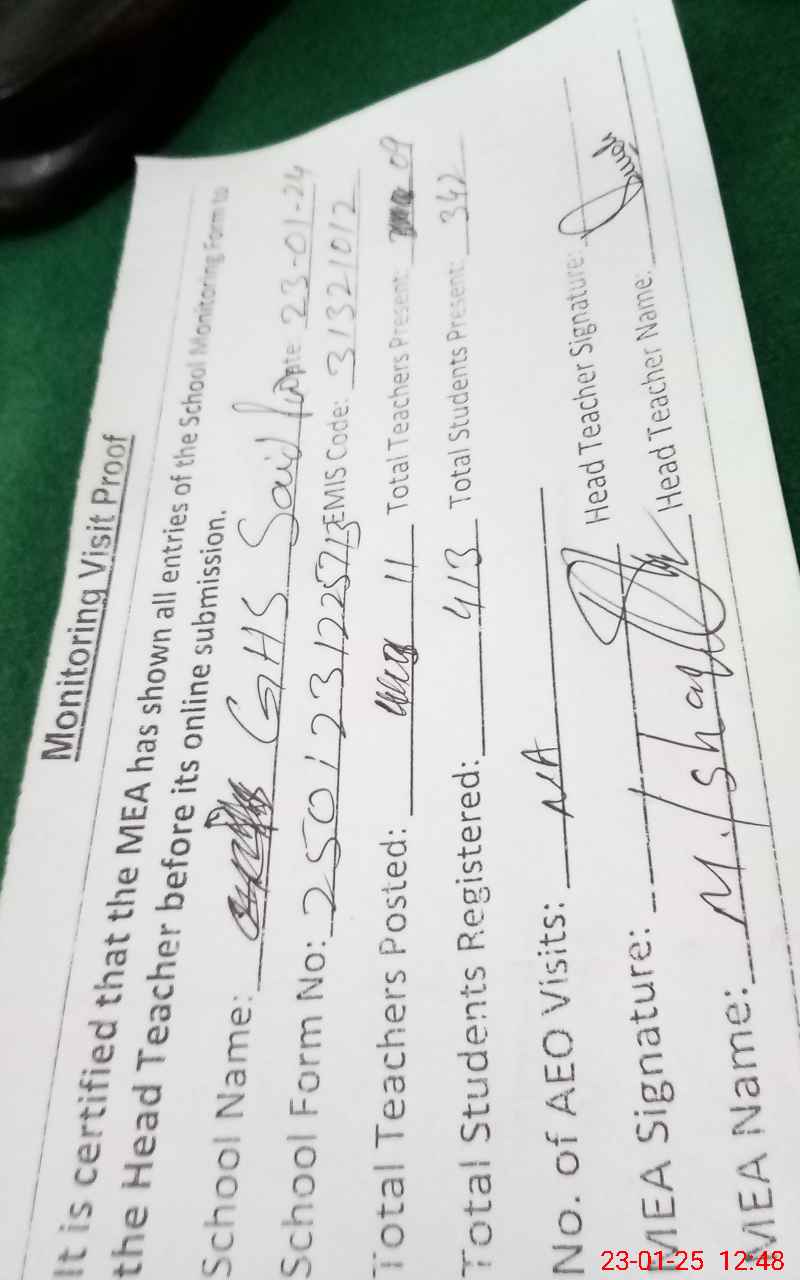 Monitoring Visit Proof
It is certified that the MEA has shown all entries of the School Monitoring Form to
the Head Teacher before its online submission.
School Name: GHS Said Date: 23-01-24
School Form No: EMIS Code: 31321012
Total Teachers Posted: 11 Total Teachers Present: 09
Total Students Registered: 413 Total Students Present: 342
No. of AEO Visits: NA
MEA Signature: Head Teacher Signature:
MEA Name: M. Head Teacher Name:
23-01-25 12.48